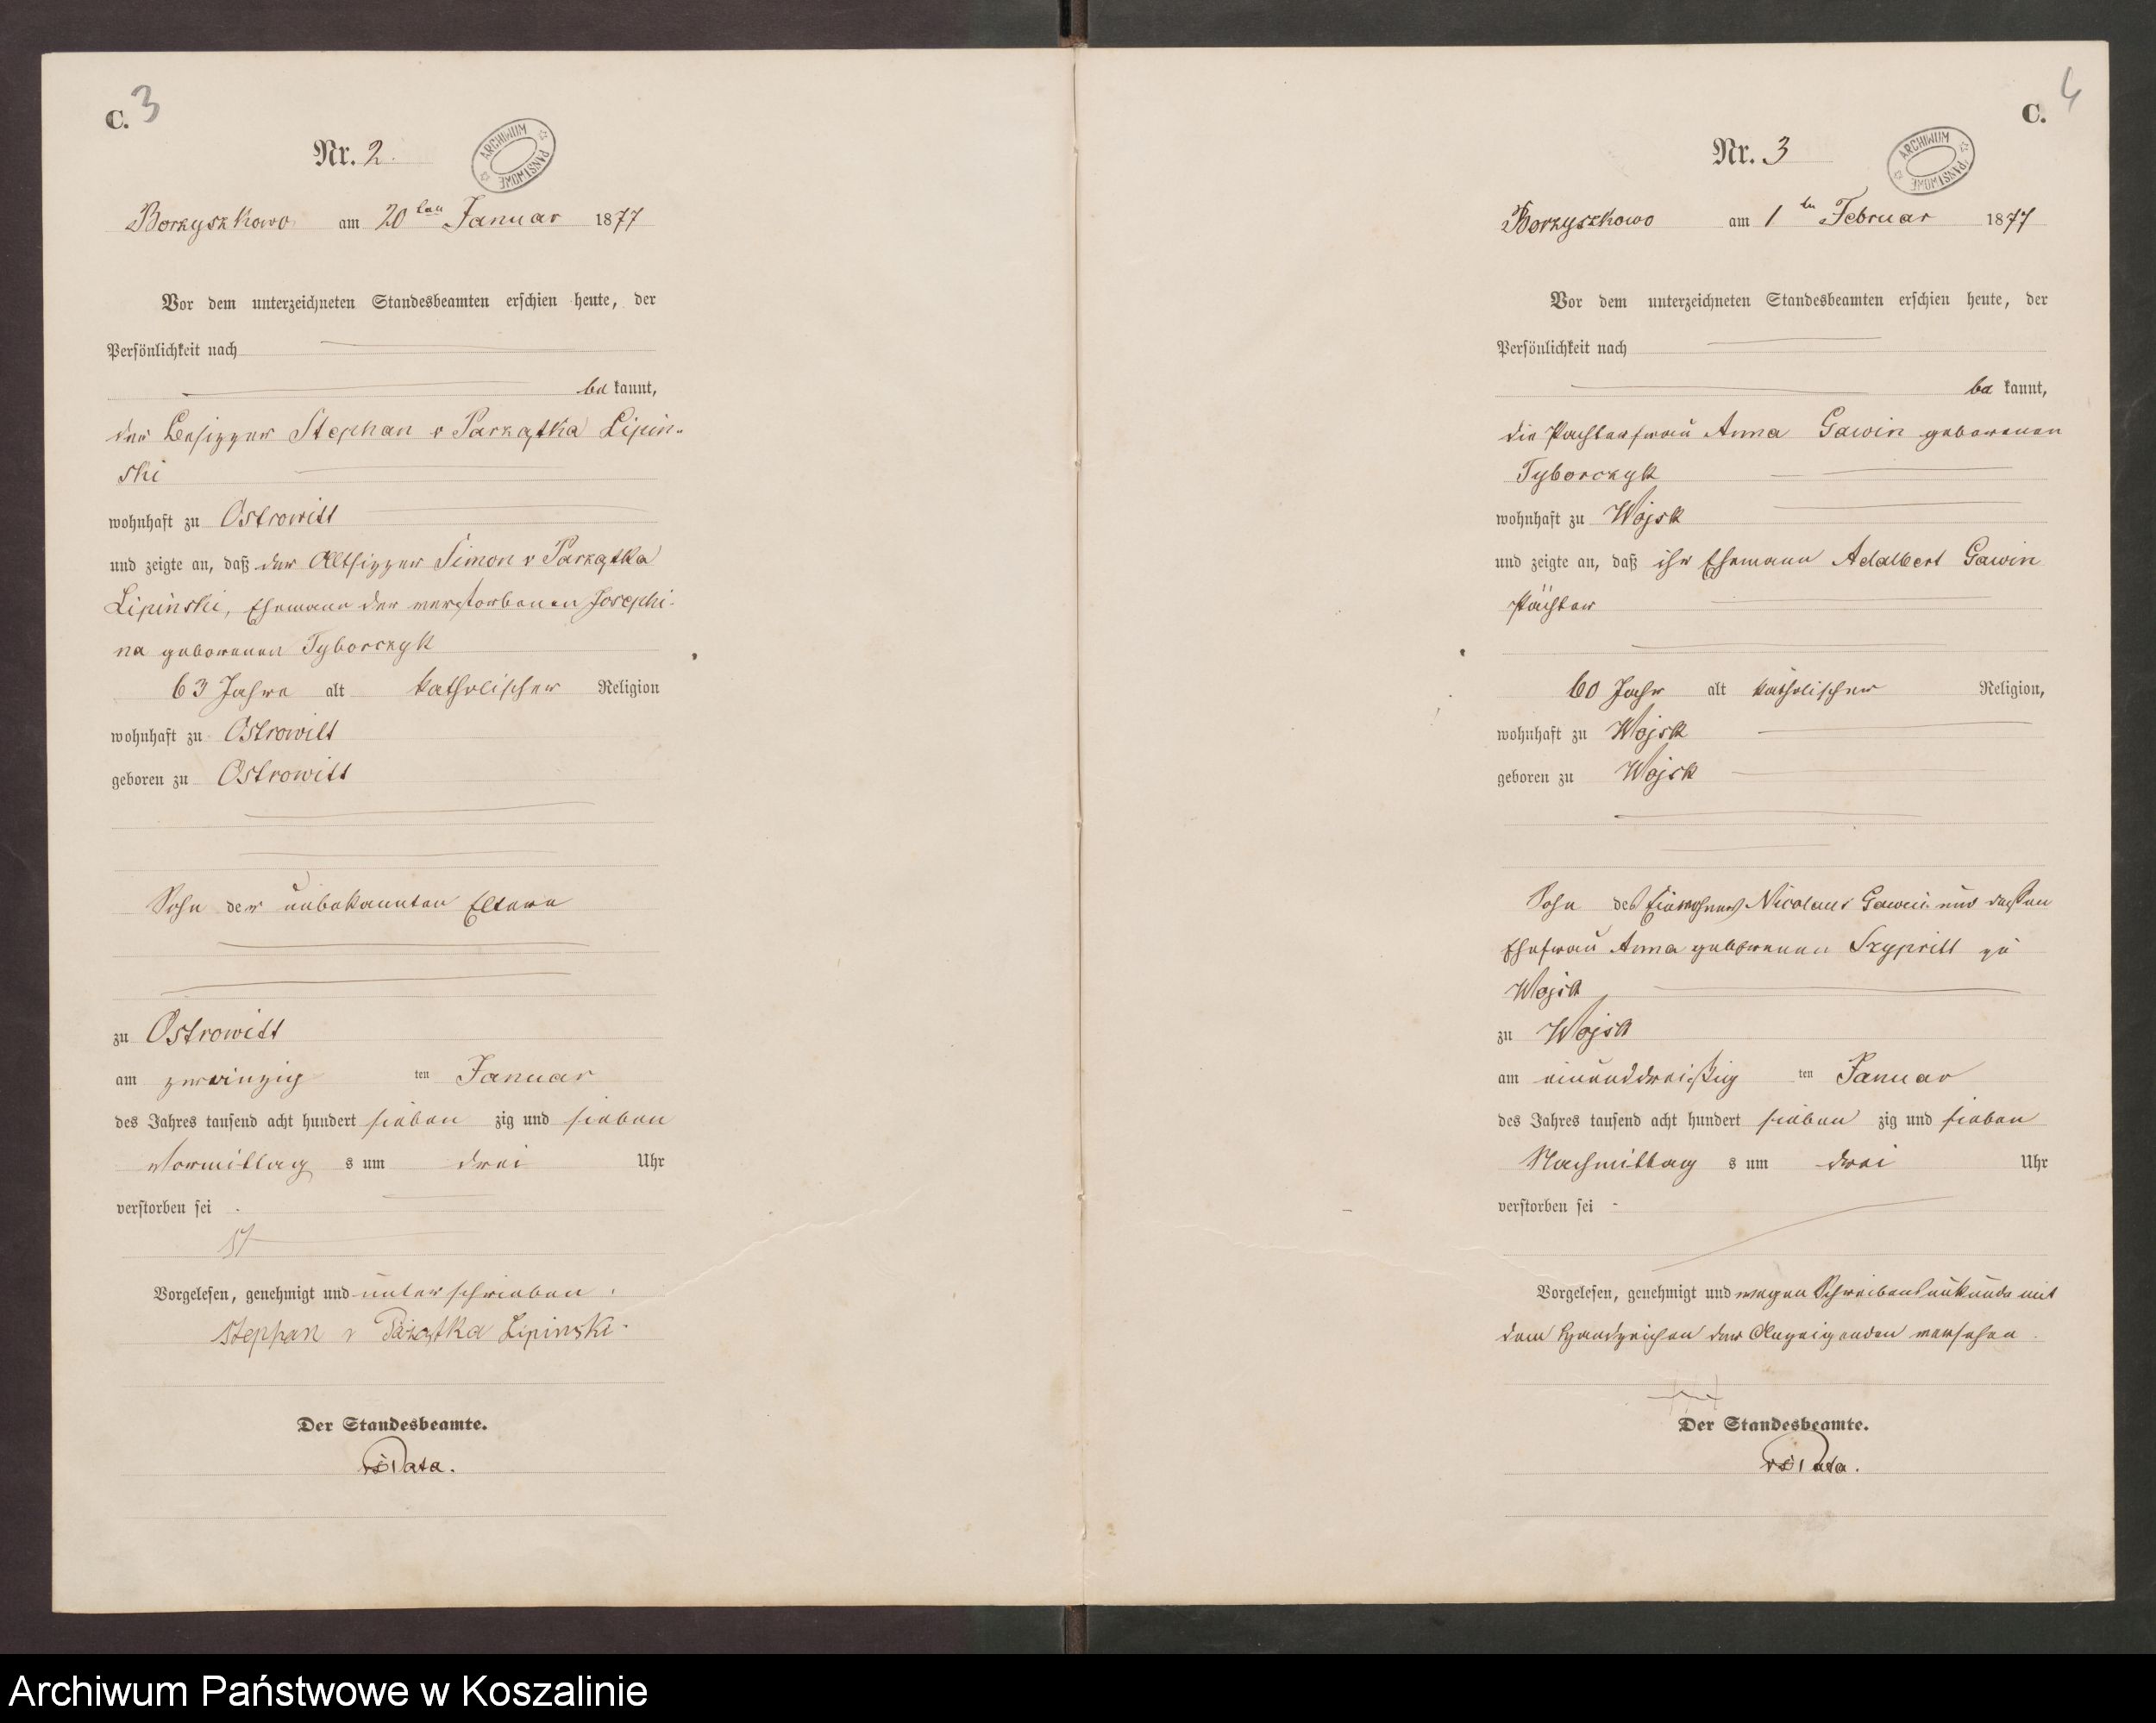 C. 3
Nr. 2.
ARCHIWUM PAŃSTWOWE
Borzyszkowo am 20ten Januar 1877
Vor dem unterzeichneten Standesbeamten erschien heute, der
Persönlichkeit nach
be kannt,
der Besitzer Stephan v Parzątka Lipin-
ski
wohnhaft zu Ostrowitt
und zeigte an, daß der Altsitzer Simon v Parzątka
Lipinski, Ehemann der verstorbenen Josephi-
na geborenen Tyborczyk
63 Jahre alt katholischer Religion
wohnhaft zu Ostrowitt
geboren zu Ostrowitt
Sohn der unbekannten Eltern
zu Ostrowitt
am zwanzig ten Januar
des Jahres tausend acht hundert sieben zig und sieben
Vormittag s um drei Uhr
verstorben sei
Vorgelesen, genehmigt und unterschrieben.
Stephan v Parzątka Lipinski
Der Standesbeamte.
C. 4
Nr. 3
ARCHIWUM PAŃSTWOWE
Borzyszkowo am 1ten Februar 1877
Vor dem unterzeichneten Standesbeamten erschien heute, der
Persönlichkeit nach
be kannt,
die Pächterfrau Anna Gawin geborenen
Tyborczyk
wohnhaft zu Wojsk
und zeigte an, daß ihr Ehemann Adalbert Gawin
Pächter
60 Jahr alt katholischer Religion,
wohnhaft zu Wojsk
geboren zu Wojsk
Sohn des Einwohners Nicolaus Gawin und dessen
Ehefrau Anna geborenen Szypritt zu
Wojsk
zu Wojsk
am einunddreißig ten Januar
des Jahres tausend acht hundert sieben zig und sieben
Nachmittag s um drei Uhr
verstorben sei
Vorgelesen, genehmigt und wegen Schreibensunkunde mit
dem Handzeichen der Anzeigenden versehen.
+++
Der Standesbeamte.
Archiwum Państwowe w Koszalinie